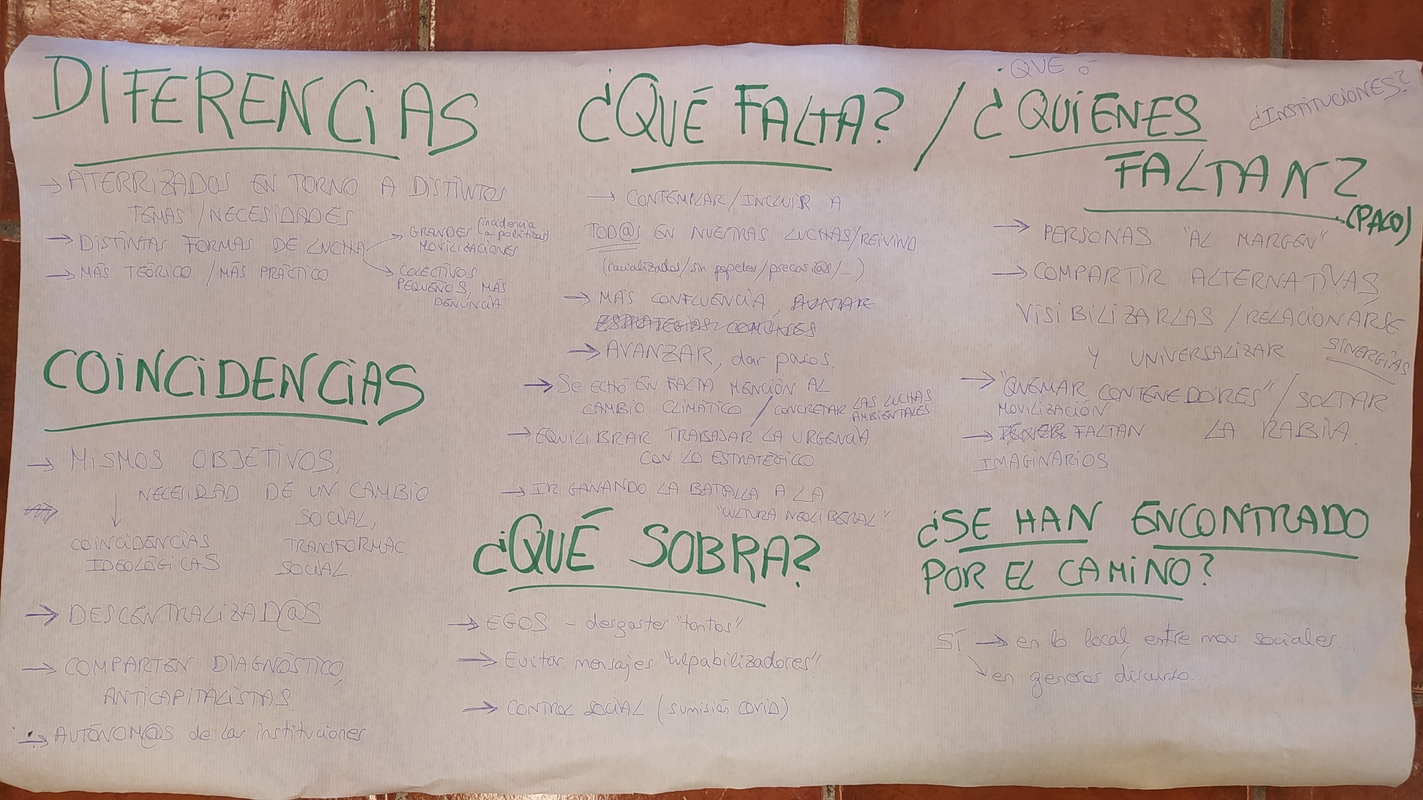 DIFERENCIAS
→ ATERRIZADOS EN TORNO A DISTINTOS
TEMAS / NECESIDADES
→ DISTINTAS FORMAS DE LUCHA
→ GRANDES (incidencia
MOVILIZACIONES a políticas)
→ COLECTIVOS
PEQUEÑOS, MÁS
DENUNCIA
→ MÁS TEÓRICO / MÁS PRÁCTICO
COINCIDENCIAS
→ MISMOS OBJETIVOS,
NECESIDAD DE UN CAMBIO
SOCIAL,
COINCIDENCIAS
IDEOLÓGICAS
TRANSFORMAC
SOCIAL
→ DESCENTRALIZAD@S
→ COMPARTEN DIAGNÓSTICO,
ANTICAPITALISTAS
→ AUTÓNOM@S de las instituciones
¿QUÉ FALTA? / ¿QUIENES
FALTAN?
(PACO)
¿QUE
¿INSTITUCIONES?
→ CONTEMPLAR / INCLUIR A
TOD@S EN NUESTRAS LUCHAS/REIVIND
(racializados/sin papeles/precari@s/...)
→ MÁS CONFLUENCIA, AVANZAR
ESTRATEGIAS COMUNES
→ AVANZAR, dar pasos.
→ Se echó EN FALTA MENCIÓN AL
CAMBIO CLIMÁTICO / CONCRETAR LAS LUCHAS
AMBIENTALES
→ EQUILIBRAR TRABAJAR LA URGENCIA
CON LO ESTRATÉGICO
→ IR GANANDO LA BATALLA A LA
"CULTURA NEOLIBERAL"
→ PERSONAS "AL MARGEN"
→ COMPARTIR ALTERNATIVAS,
VISIBILIZARLAS / RELACIONARSE
Y UNIVERSALIZAR SINERGIAS
→ "QUEMAR CONTENEDORES" / SOLTAR
MOVILIZACIÓN LA RABIA.
→ TENER FALTAN
IMAGINARIOS
¿QUÉ SOBRA?
→ EGOS - desgastes "tontos"
→ Evitar mensajes "culpabilizadores"
→ CONTROL SOCIAL (sumisión COVID)
¿SE HAN ENCONTRADO
POR EL CAMINO?
SÍ → en lo local, entre mov sociales...
→ en generar discurso...